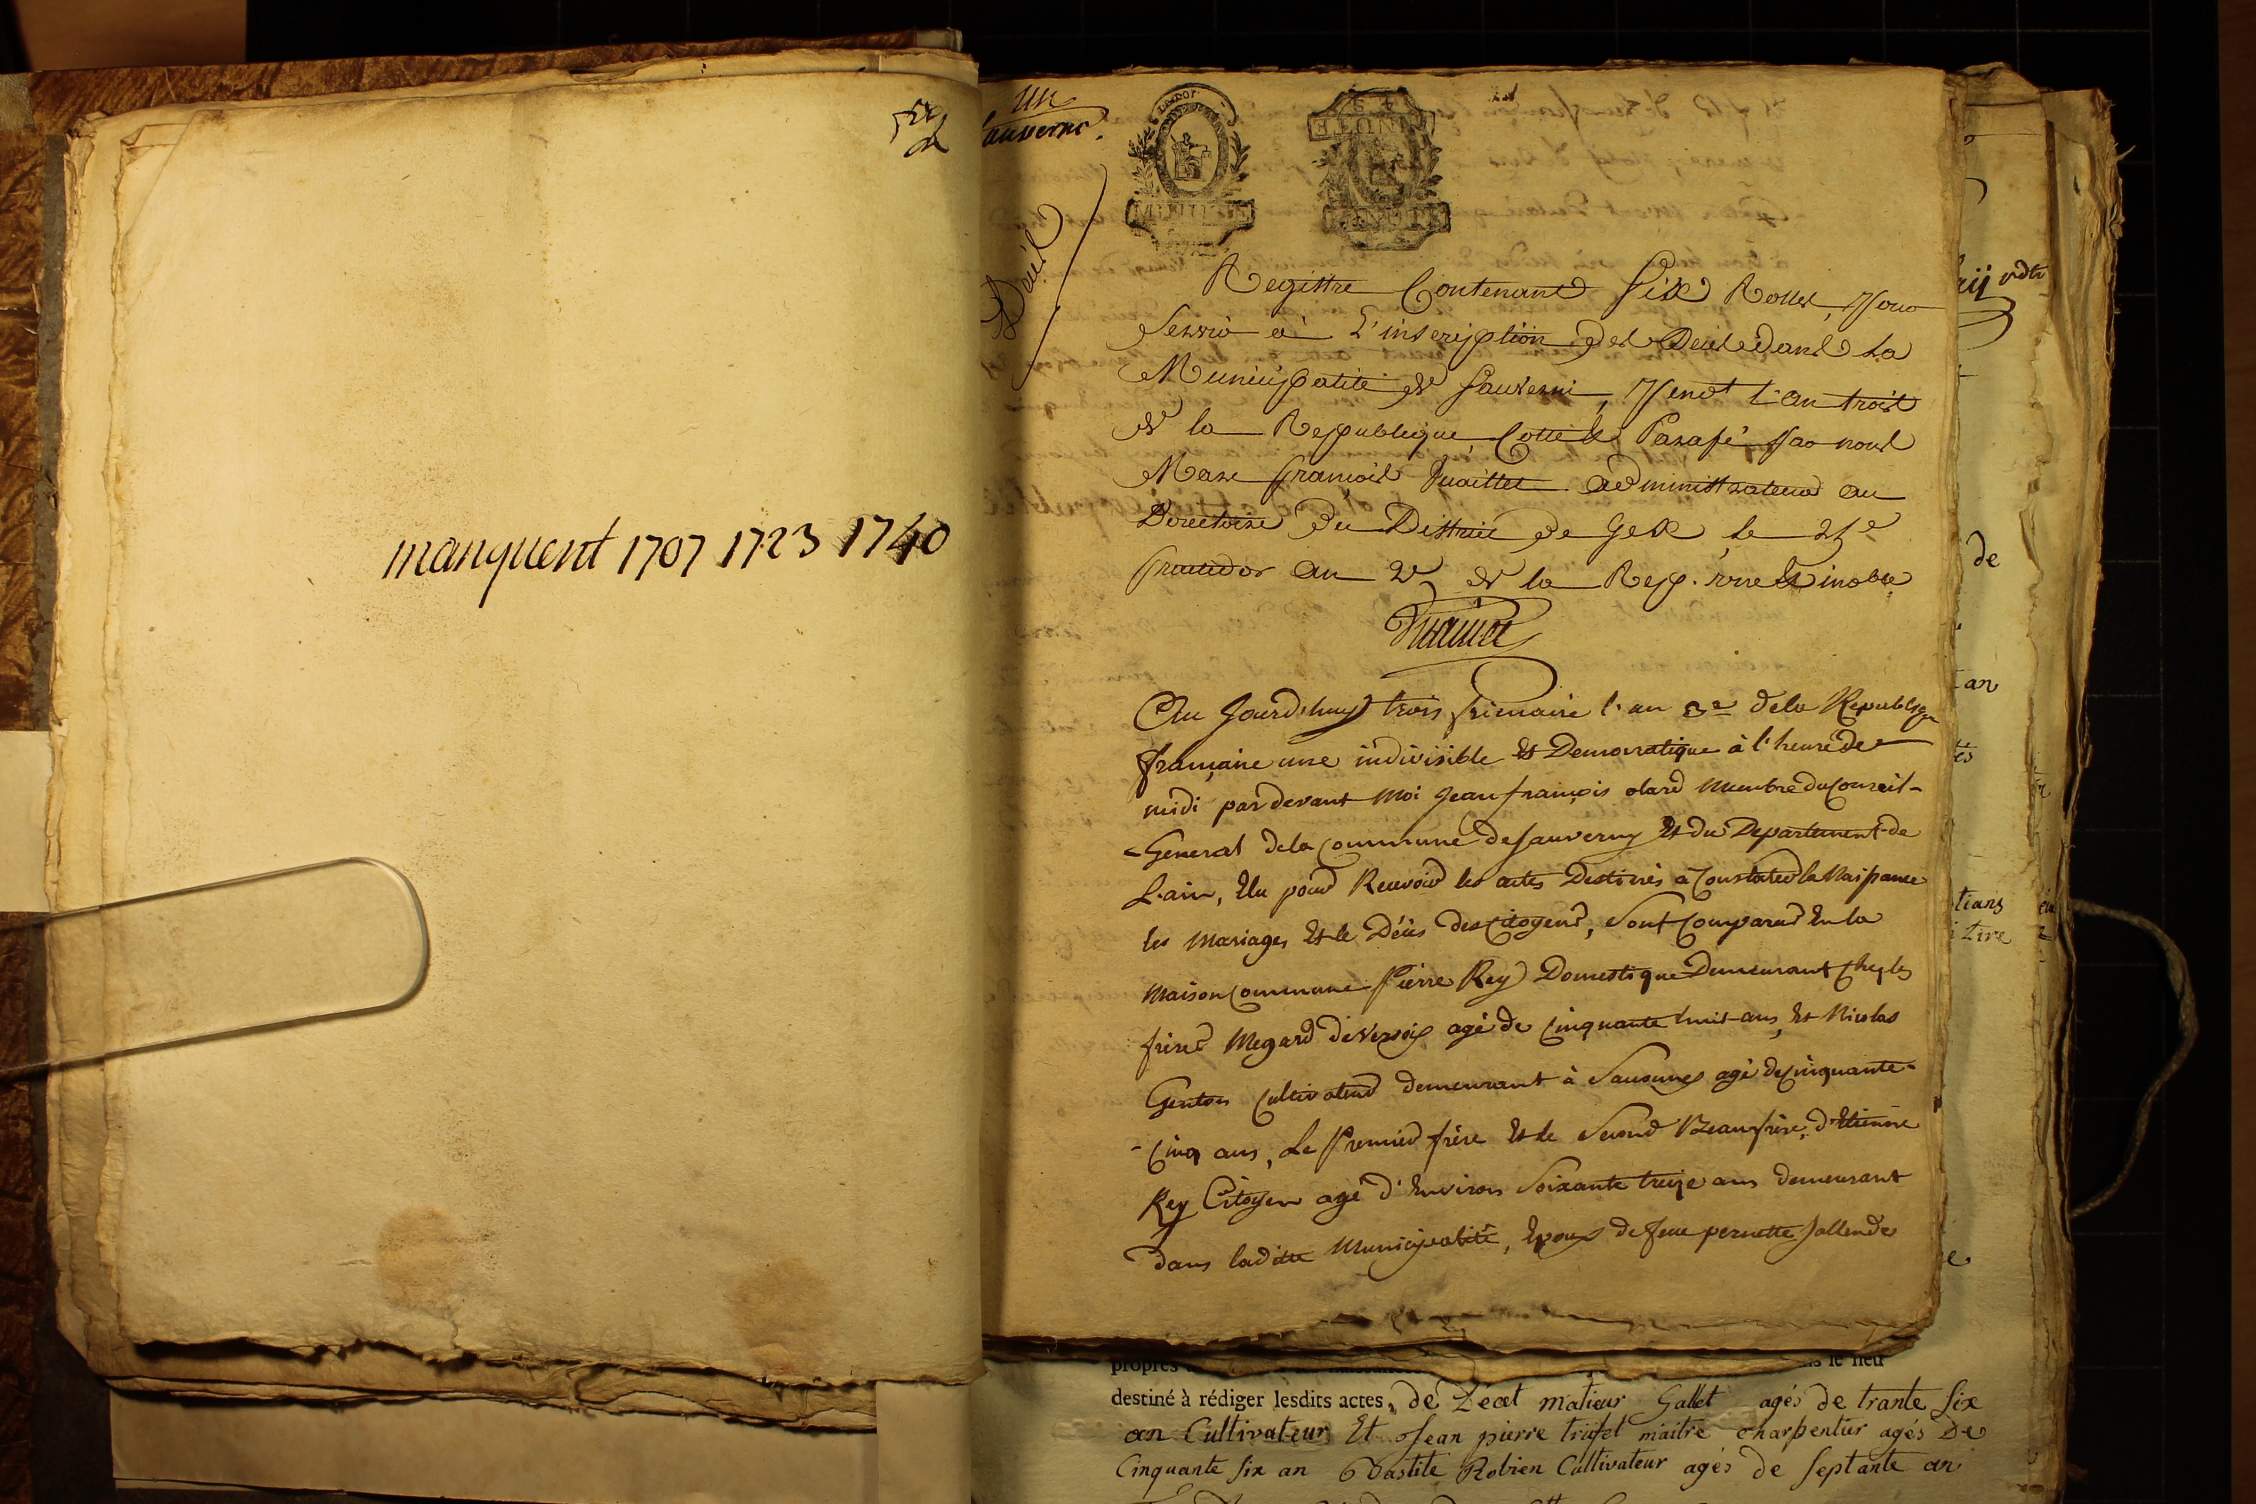 manquent 1707 1723 1740
un
Sauverni.
Decès
MINUTE
MINUTE
Registre Contenant Six Rolles, pour
Servir à L'inscription des Decès dans la
Municipalité de Sauverni, pendt l'an trois
de la Republique, Cotté & Parafé par nous
Marc François administrateur au
Directoire du District de Gex le 25e
fructidor an 2e de la Rep. une & indble.
Au Jourd'huy trois frimaire l'an 3e dela Republique
française une indivisible Et Democratique à l'heure de
midi par devant Moi Jean françois olard Membre du Conseil
General dela Commune de Sauverny Et du Departement de
L'ain, Elu pour Recevoir les actes Destinés à Constater la Naissance
les Mariages Et le Décès des Citoyens, Sont Comparus En la
Maison Commune Pierre Rey Domestique Demeurant chez les
frères Megard de Versoix agé de Cinquante huit ans, Et Nicolas
Genton Cultivateur demeurant à Sauverny agé de Cinquante-
-Cinq ans, Le Premier frère Et le Second Beaufrère, d'Etienne
Rey Citoyen agé d'Environ Soixante treize ans demeurant
dans ladite Municipalité, Epoux de feue pernette
destiné à rédiger lesdits actes, de matieur Gallet agés de trante Six
an Cultivateur Et Jean pierre maitre charpentier agés De
Cinquante Six an Bastite Robien Cultivateur agés de Septante an